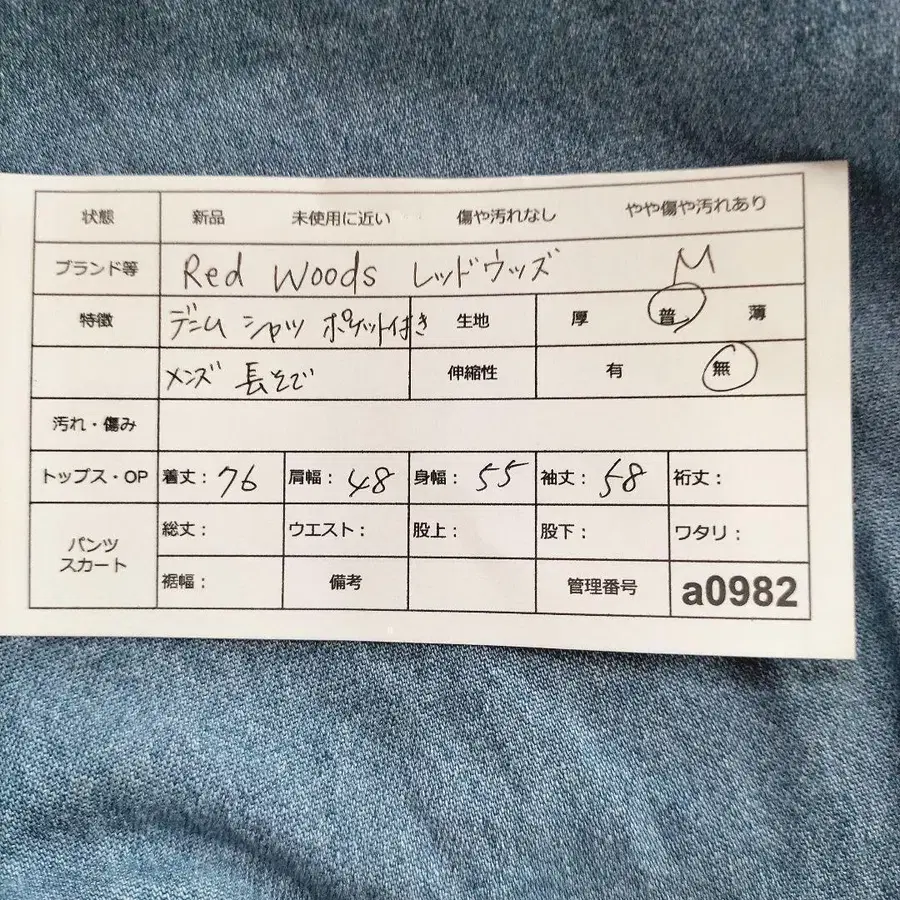 状態 新品 未使用に近い 傷や汚れなし やや傷や汚れあり
ブランド等 Red Woods レッドウッズ M
特徴 デニム シャツ ポケット付き 生地 厚 普 薄
メンズ 長そで 伸縮性 有 無
汚れ・傷み
トップス・OP 着丈：76 肩幅：48 身幅：55 袖丈：58 裄丈：
パンツ スカート 総丈： ウエスト： 股上： 股下： ワタリ：
裾幅： 備考 管理番号 a0982